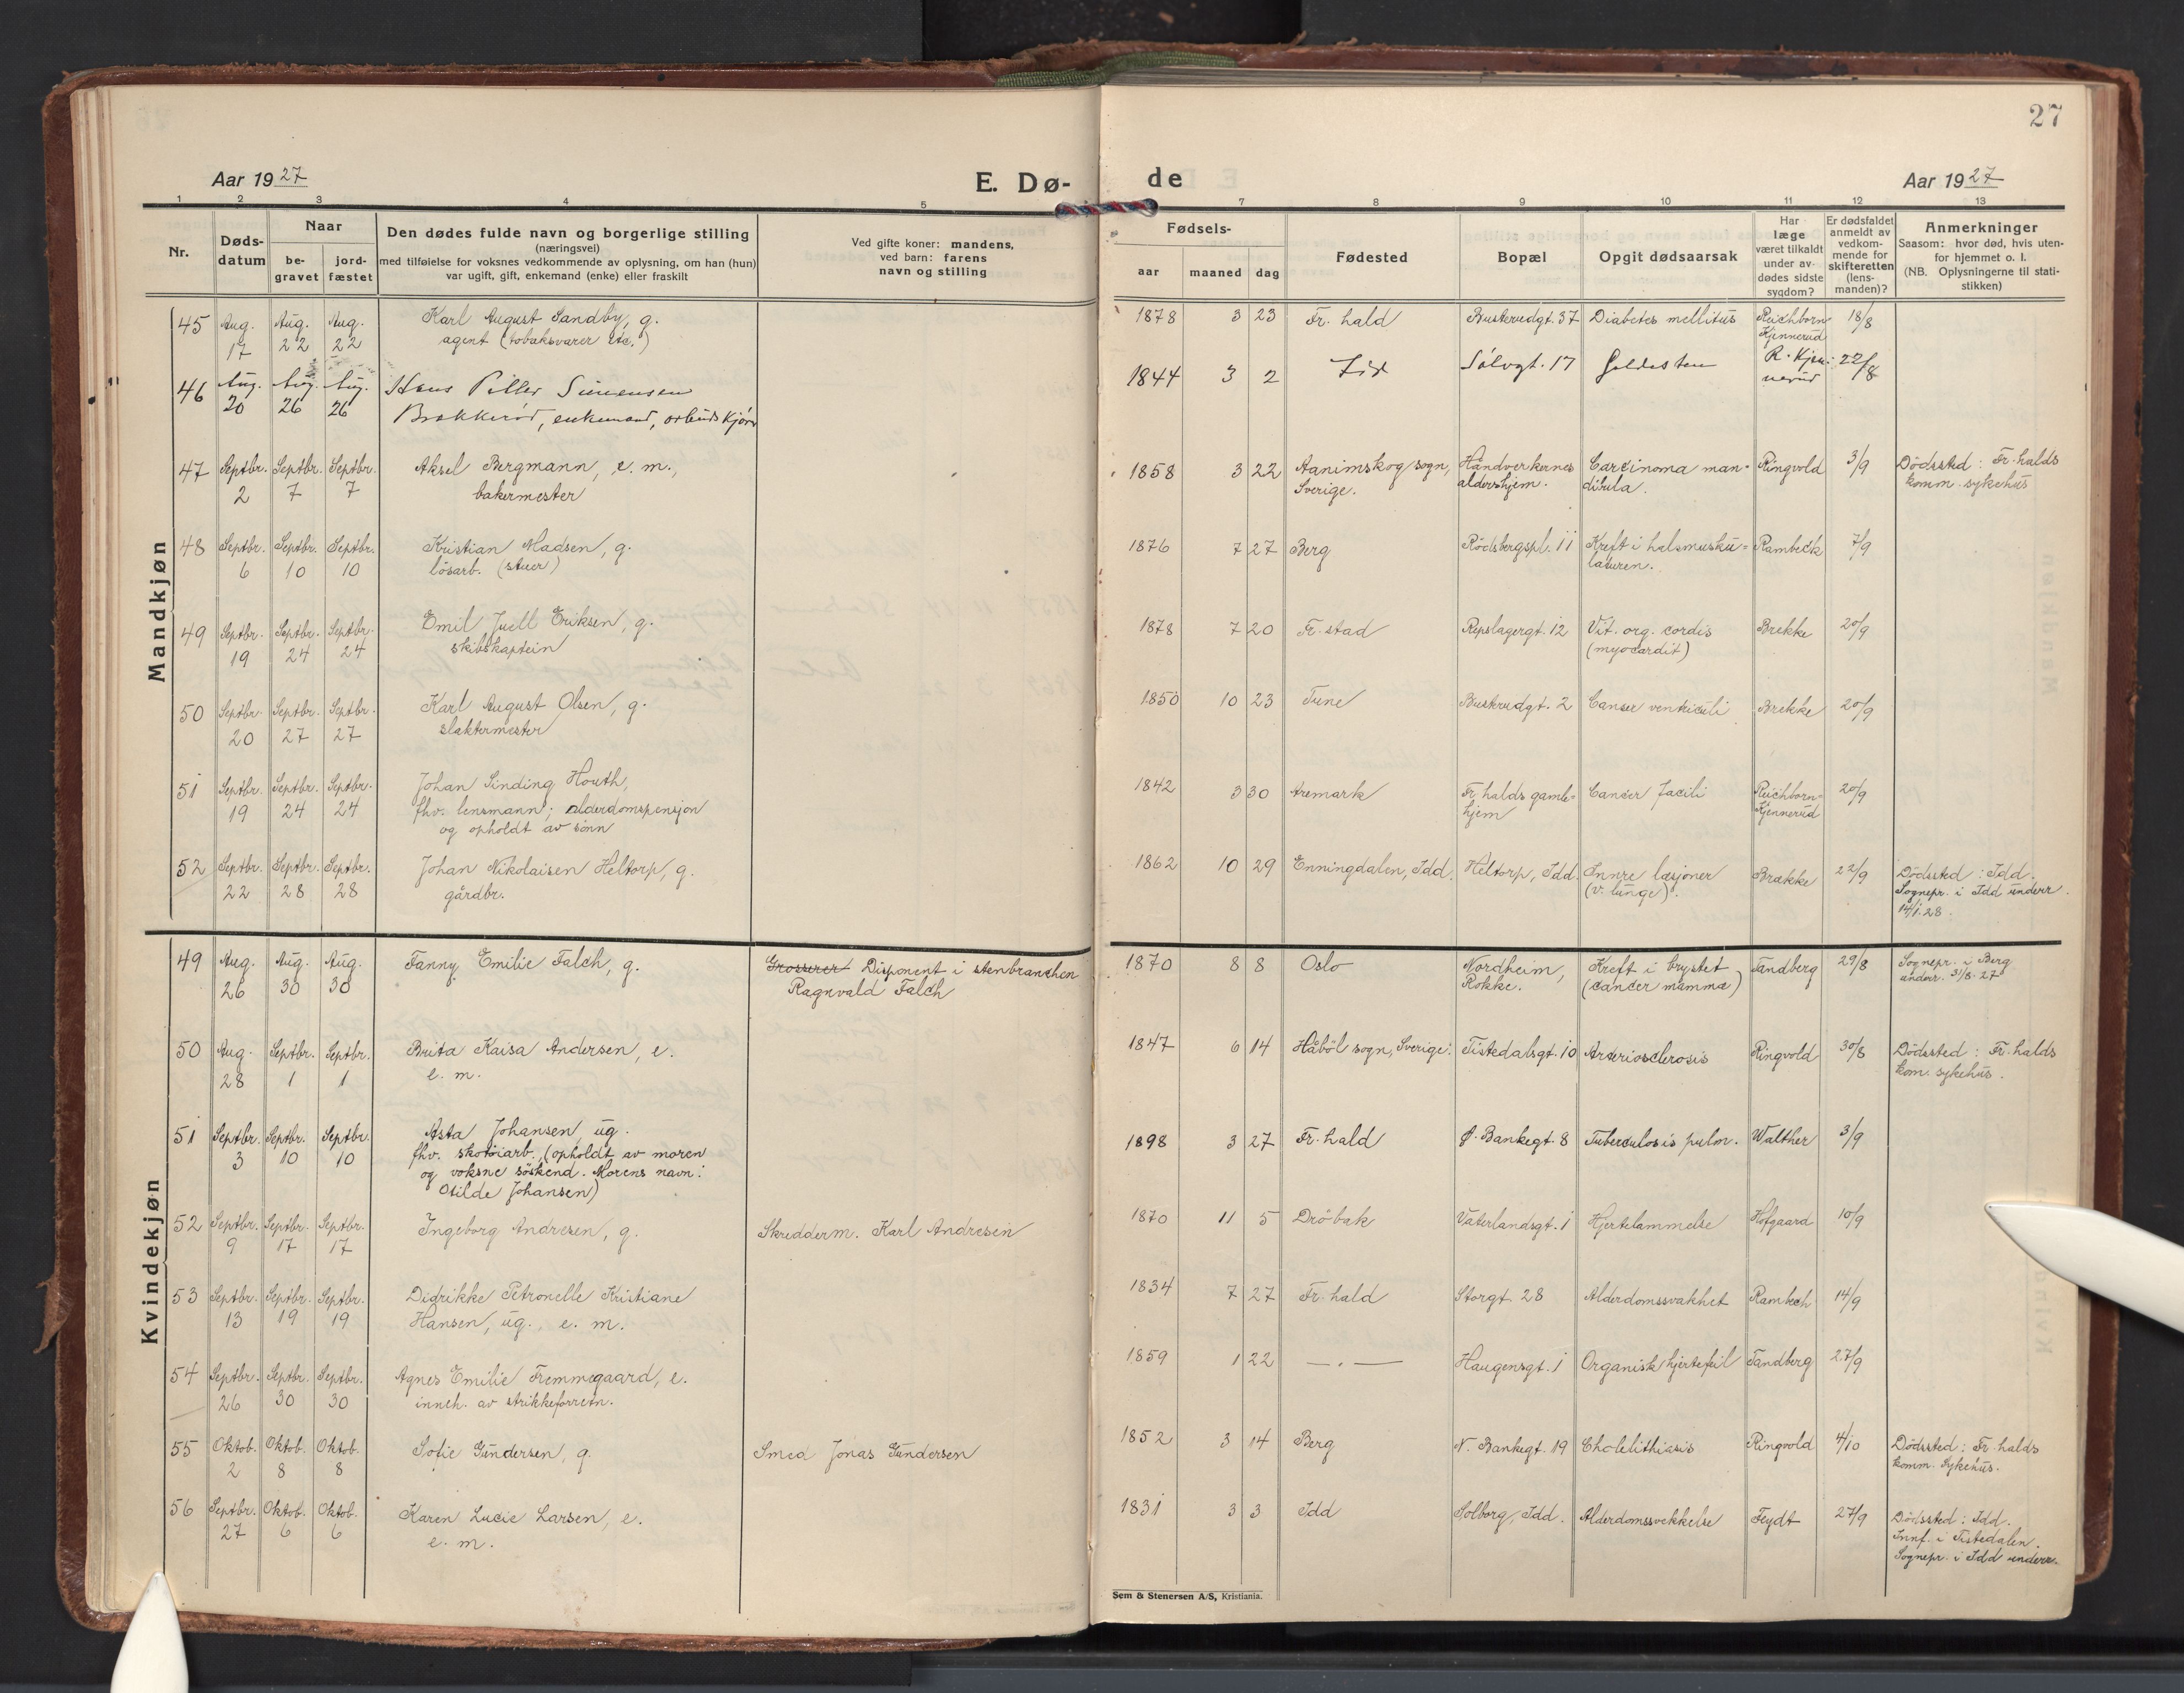 27
Aar 1927
E. Dø-
de
Aar 1927
1 2 3 4 5 7 8 9 10 11 12 13
Nr.
Døds-
datum
Naar
be-
gravet
jord-
fæstet
Den dødes fulde navn og borgerlige stilling
(næringsvei)
med tilføielse for voksnes vedkommende av oplysning, om han (hun)
var ugift, gift, enkemand (enke) eller fraskilt
Ved gifte koner: mandens,
ved barn: farens
navn og stilling
Fødsels-
aar maaned dag
Fødested
Bopæl
Opgit dødsaarsak
Har
læge
været tilkaldt
under av-
dødes sidste
sygdom?
Er dødsfaldet
anmeldt av
vedkom-
mende for
skifteretten
(lens-
manden)?
Anmerkninger
Saasom: hvor død, hvis uten-
for hjemmet o. l.
(NB. Oplysningerne til stati-
stikken)
Mandkjøn
45 Aug. Aug. Aug. Karl August Sandby, g. 1878 3 23 Fr. hald Buskrudgt. 37 Diabetes mellitus Reichborn 18/8
17 22 22 agent (tobaksvarer etc.) Kjennerud
46 Aug. Aug. Aug. Hans Petter Simensen 1844 3 2 Sølvgt. 17 Galdesten R. Kjen- 22/8
20 26 26 enkemand, nerud
47 Septbr. Septbr. Septbr. Aksel Bergmann, e. m., 1858 3 22 Aanimskog sogn, Håndverkernes Carcinoma man- Ringvold 3/9 Dödssted: Fr. halds
2 7 7 bakermester Sverige. aldershjem. dibula. komm. sykehus
48 Septbr. Septbr. Septbr. Kristian Madsen, g. 1876 7 27 Berg Rödsbergspl. 11 Kreft i halsmusku- Rambeck 7/9
6 10 10 lösarb. (stuer) laturen.
49 Septbr. Septbr. Septbr. Emil Juell Eriksen, g. 1878 7 20 Fr. stad Repslagergt. 12 Vit. org. cordis Brekke 20/9
19 24 24 skibskaptein (myocardit)
50 Septbr. Septbr. Septbr. Karl August Olsen, g. 1850 10 23 Tune Buskrudgt. 2 Canser ventriculi Brekke 20/9
20 27 27 slaktermester
51 Septbr. Septbr. Septbr. Johan Sinding Houth, 1842 3 30 Aremark Fr. halds gamle- Canser facili Reichborn- 20/9
19 24 24 fhv. lensmann; alderdomspensjon hjem Kjennerud
og opholdt av sönn
52 Septbr. Septbr. Septbr. Johan Nikolaisen Heltorp, g. 1862 10 29 Enningdalen, Idd. Heltorp, Idd. Innre læsjoner Brække 22/9 Dödssted: Idd.
22 28 28 gårdbr. (v. lunge). Sognepr. i Idd underr.
14/1.28.
Kvindekjøn
49 Aug. Aug. Aug. Fanny Emilie Falch, g. Grosserer Disponent i stenbranchen 1870 8 8 Oslo Nordheim, Kreft i brystet Tandberg 29/8 Sognepr. i Berg
26 30 30 Ragnvald Falch Rokke. (cancer mamma) underr. 31/8.27
50 Aug. Septbr. Septbr. Brita Kaisa Andersen, e. 1847 6 14 Håböl sogn, Sverige. Tistedalsgt. 10 Arteriosclerosis Ringvold 30/8 Dödssted: Fr. halds
28 1 1 e. m. kom. sykehus.
51 Septbr. Septbr. Septbr. Asta Johansen, ug. 1898 3 27 Fr. hald Ø. Bankegt. 8 Tuberculosis pulm. Walther 3/9
3 10 10 fhv. skotöiarb. (opholdt av moren
og voksne söskend. Morens navn:
Otilde Johansen)
52 Septbr. Septbr. Septbr. Ingeborg Andresen, g. Skredderm. Karl Andresen 1870 11 5 Dröbak Vaterlandsgt. 1 Hjertelammelse Hofgaard 10/9
9 17 17
53 Septbr. Septbr. Septbr. Didrikke Petronelle Kristiane 1834 7 27 Fr. hald Storgt. 28 Alderdomssvakhet Rambech 14/9
13 19 19 Hansen, ug., e. m.
54 Septbr. Septbr. Septbr. Agnes Emilie Fremmegaard, e. 1859 1 22 — . — Haugensgt. 1 Organisk hjertefeil Tandberg 27/9
26 30 30 inneh. av strikkeforretn.
55 Oktob. Oktob. Oktob. Sofie Gundersen, g. Smed Jonas Gundersen 1852 3 14 Berg N. Bankegt. 19 Cholelithiasis Ringvold 4/10 Dödssted: Fr. halds
2 8 8 komm. Sykehus.
56 Septbr. Oktob. Oktob. Karen Lucie Larsen, e. 1831 3 3 Idd Solborg, Idd. Alderdomssvekkelse Feydt 27/9 Dödssted: Idd.
27 6 6 e. m. Innf. i Tistedalen.
Sognepr. i Idd underr.
Sem & Stenersen A/S, Kristiania.